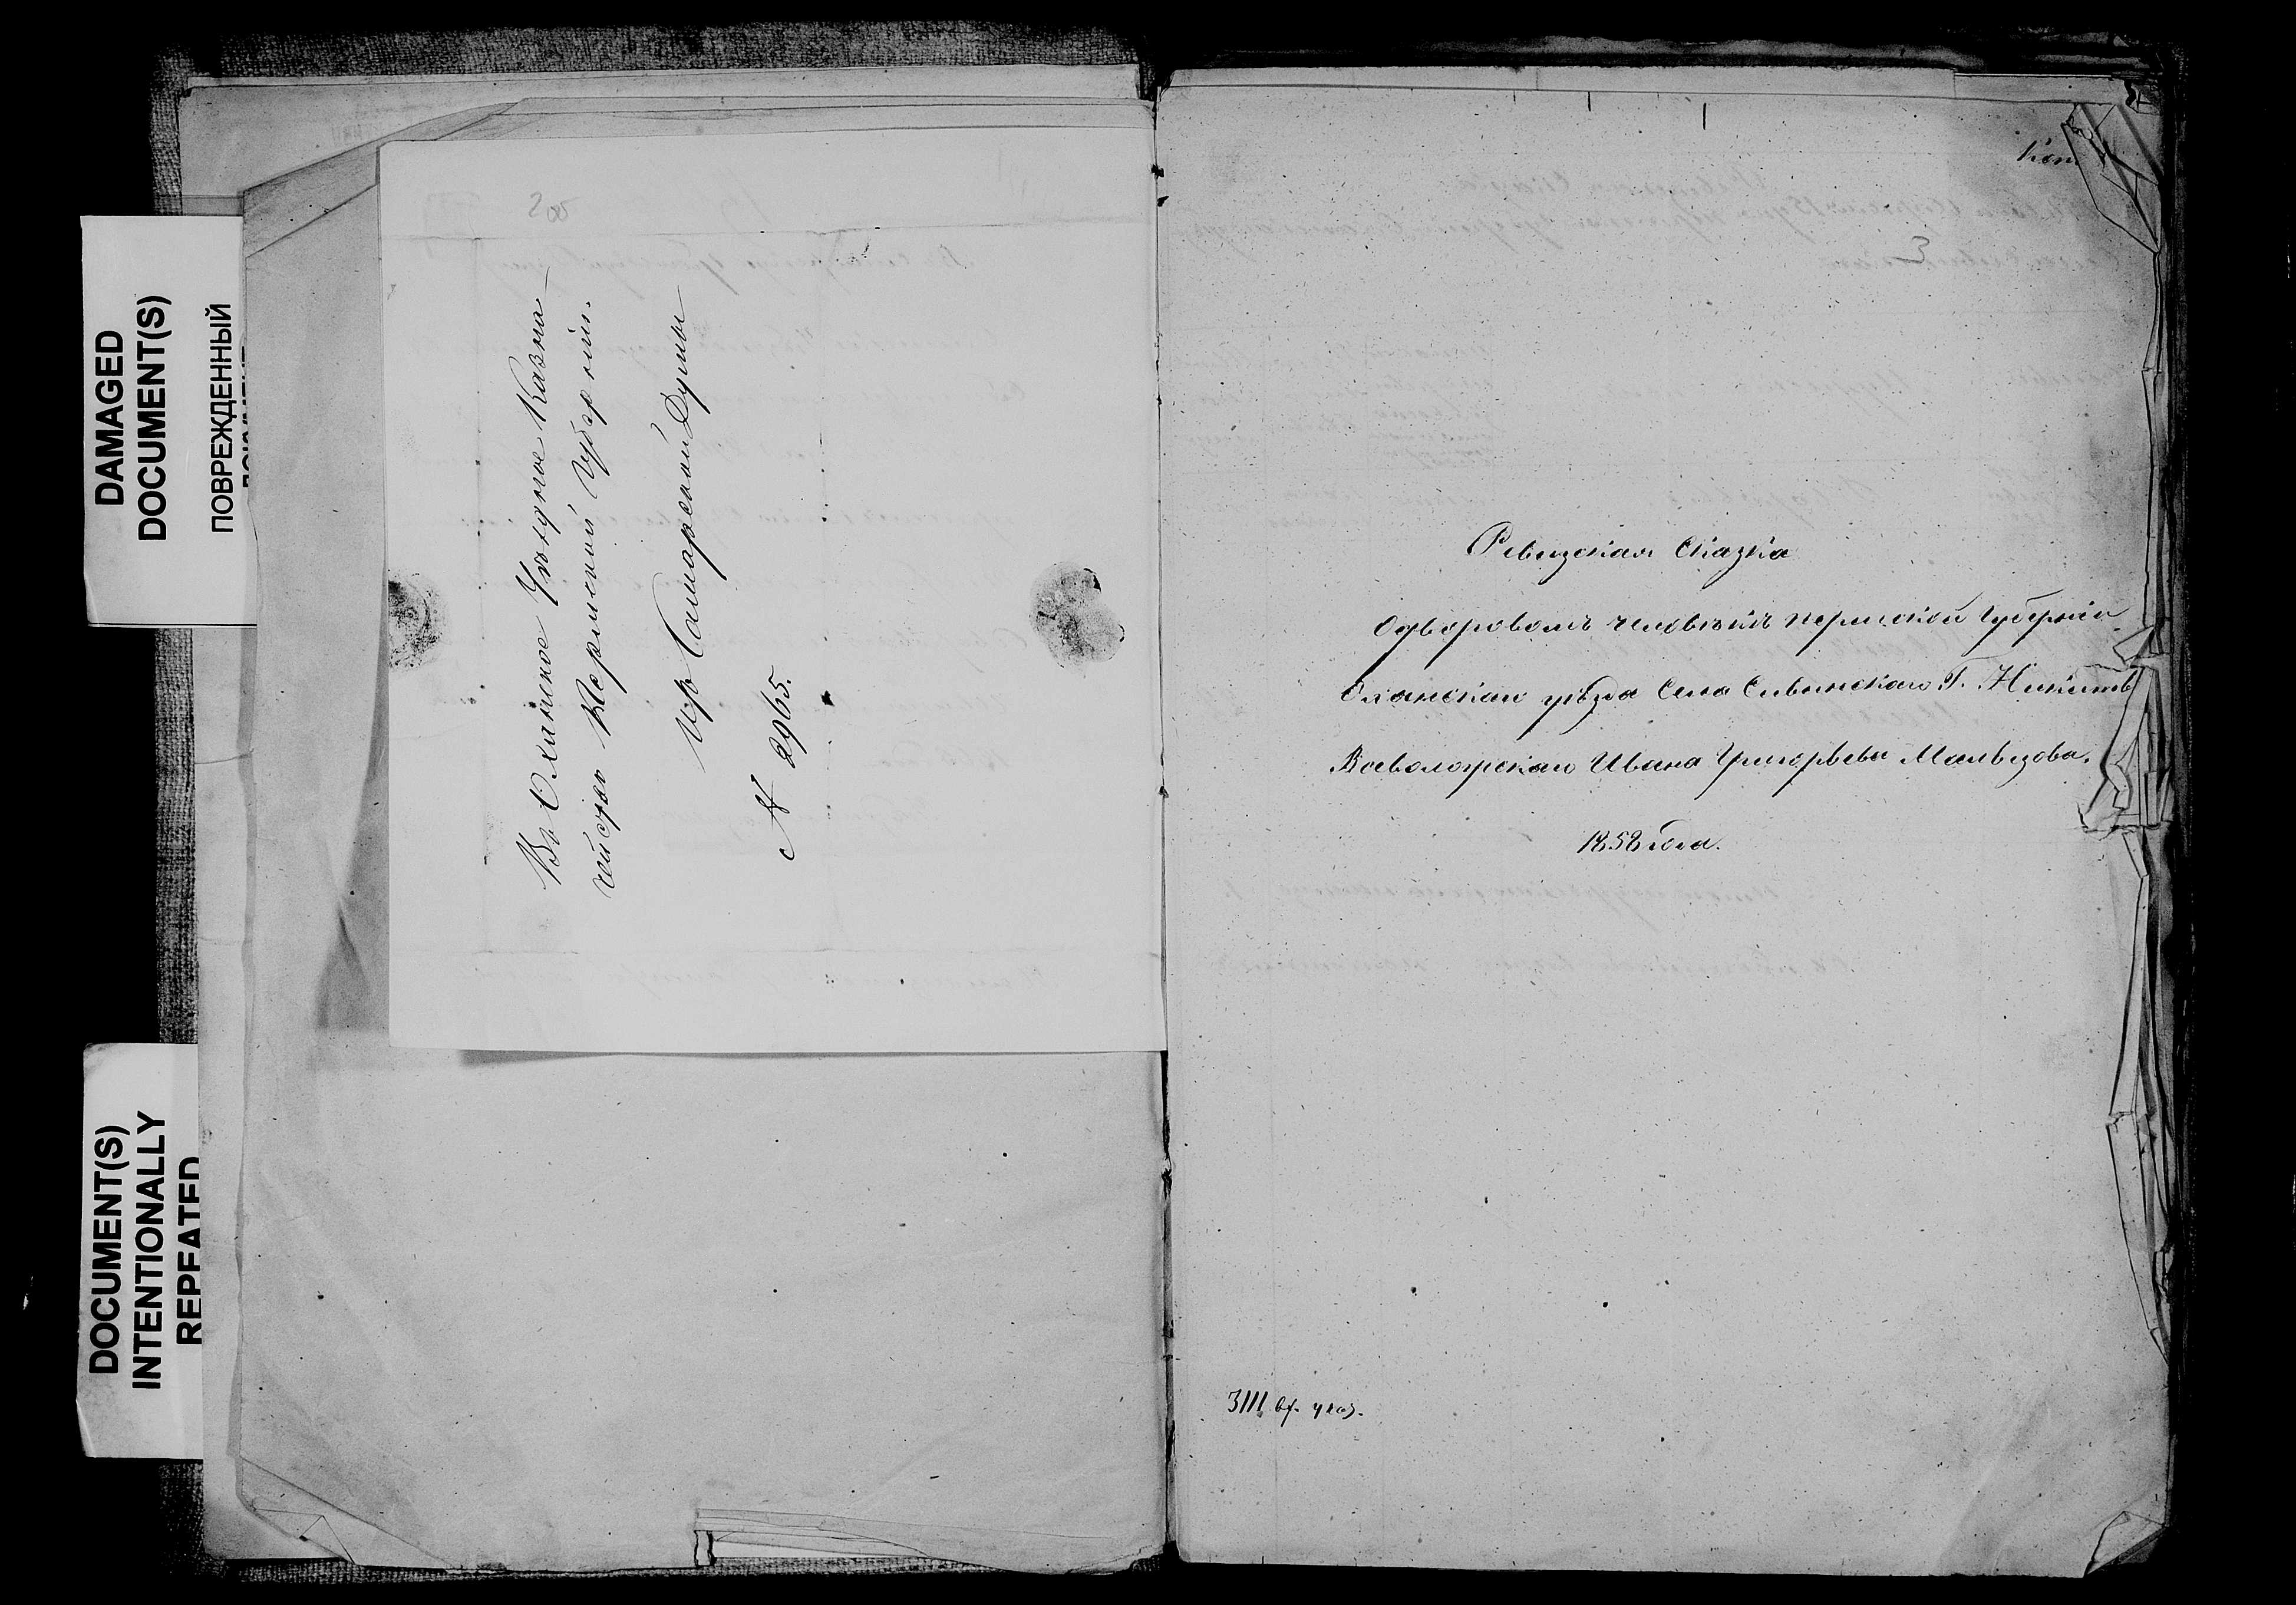 DAMAGED
DOCUMENT(S)
ПОВРЕЖДЕННЫЙ
DOCUMENT(S)
INTENTIONALLY
REPEATED
2об
Въ Оханское Уѣздное Казна-
чейство Пермской Губерніи.
Изъ Самарской Думы
№ 2965.
3
Ревизская Сказка
Одворовомъ человѣкѣ пермской Губерніи
Оханскаго уѣзда Села Сивинскаго Г. Никиты
Всеволожскаго Ивана Григорьева Мальцова.
1858 года.